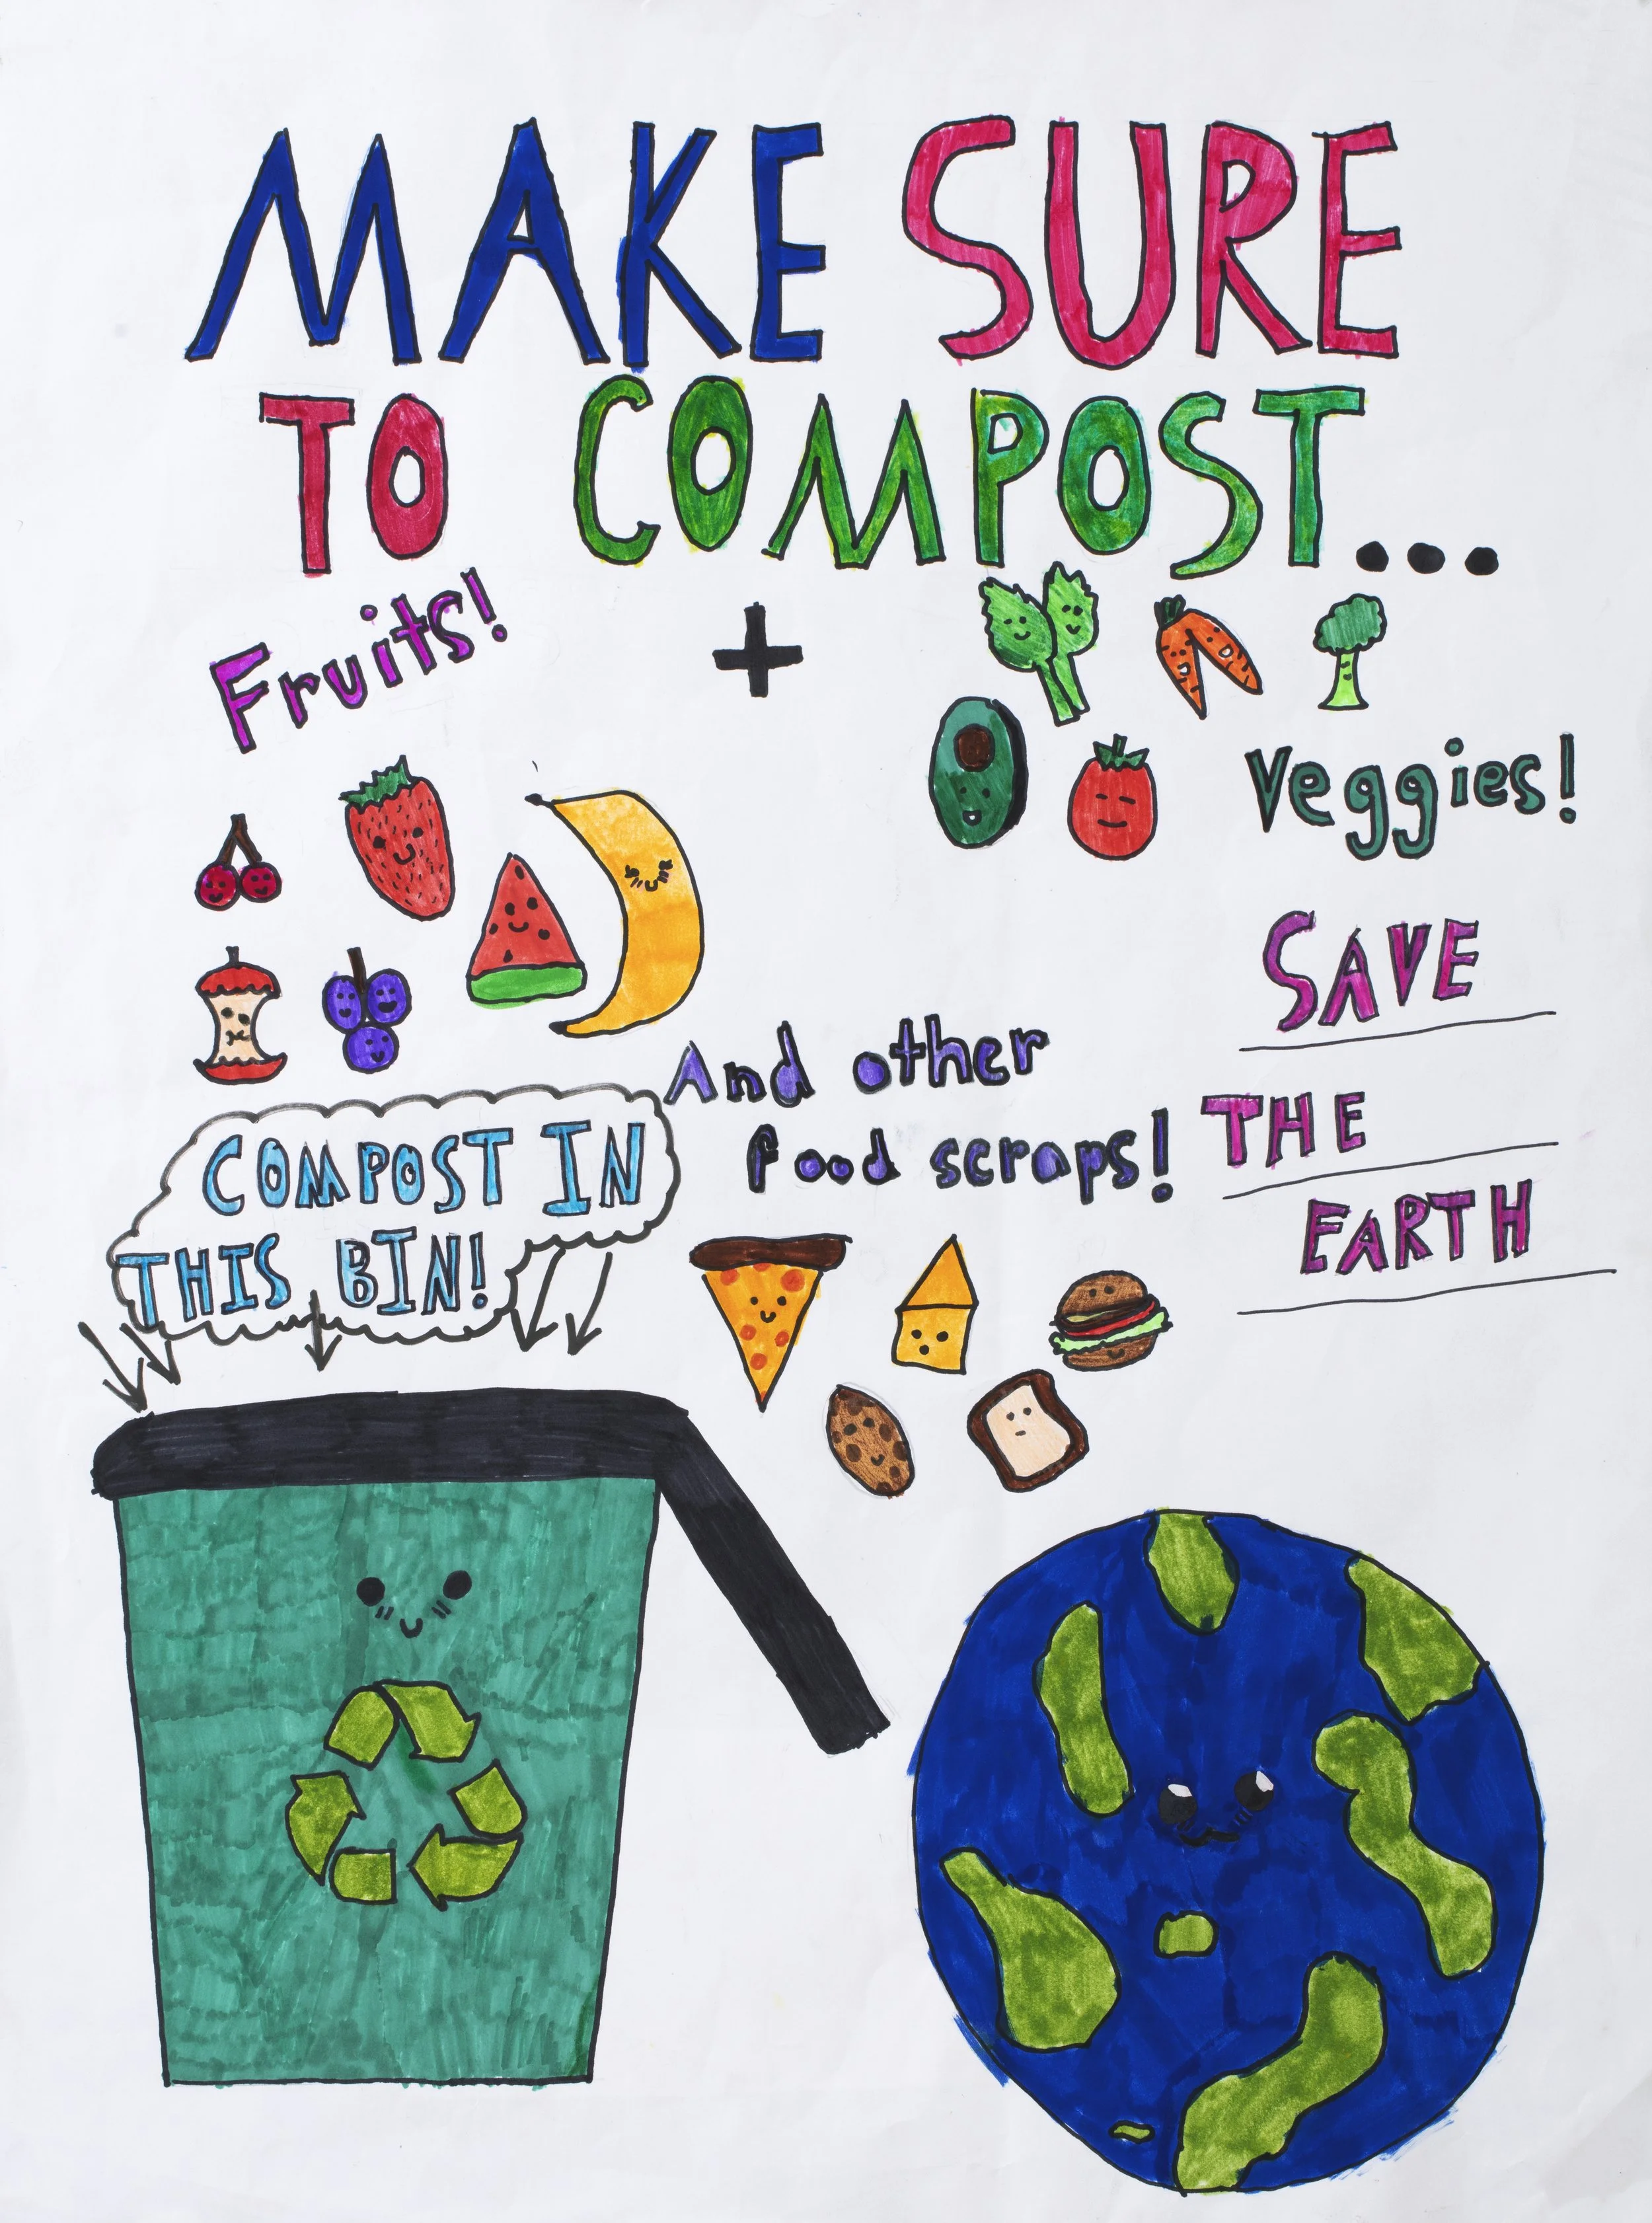 MAKE SURE
TO COMPOST...
Fruits!
+
Veggies!
SAVE
THE
EARTH
And other
food scraps!
COMPOST IN
THIS BIN!